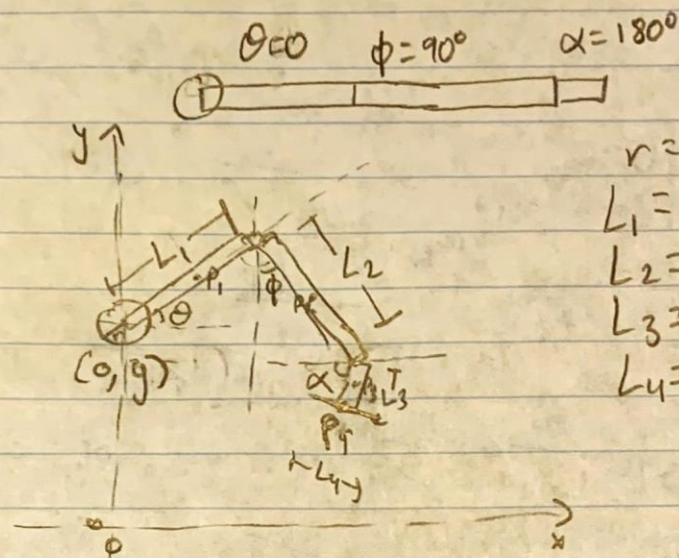 θ=0 ϕ=90° α=180°
y
r=
L₁=
L₂=
L₃=
L₄=
L₁
L₂
P₁
θ
ϕ
(0, y)
α
L₃
P₄
L₄
x